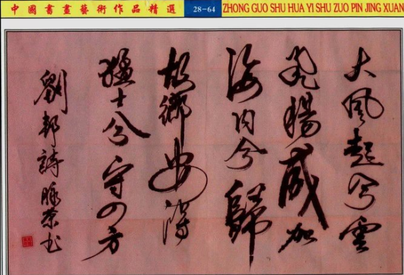 中國書畫藝術作品精選
28-64
ZHONG GUO SHU HUA YI SHU ZUO PIN JING XUAN
大風起兮雲
飛揚威加
海内兮歸
故鄉安得
猛士兮守四方
劉邦詩 書